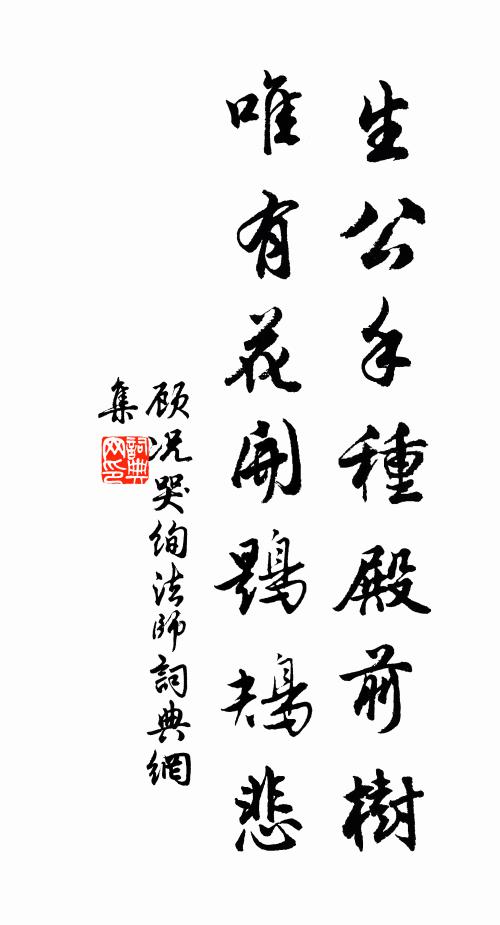 生公手種殿前樹
唯有花開鶗鴂悲
顾况哭绚法師詞典網
集
詞典
网印